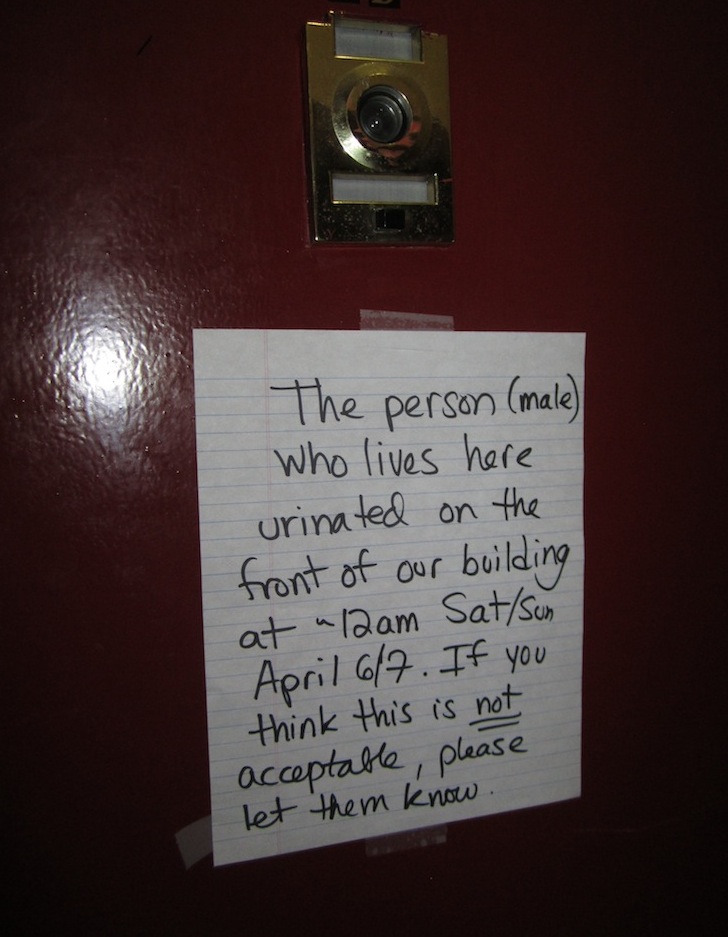 The person (male)
who lives here
urinated on the
front of our building
at ~12am Sat/Sun
April 6/7. If you
think this is not
acceptable, please
let them know.